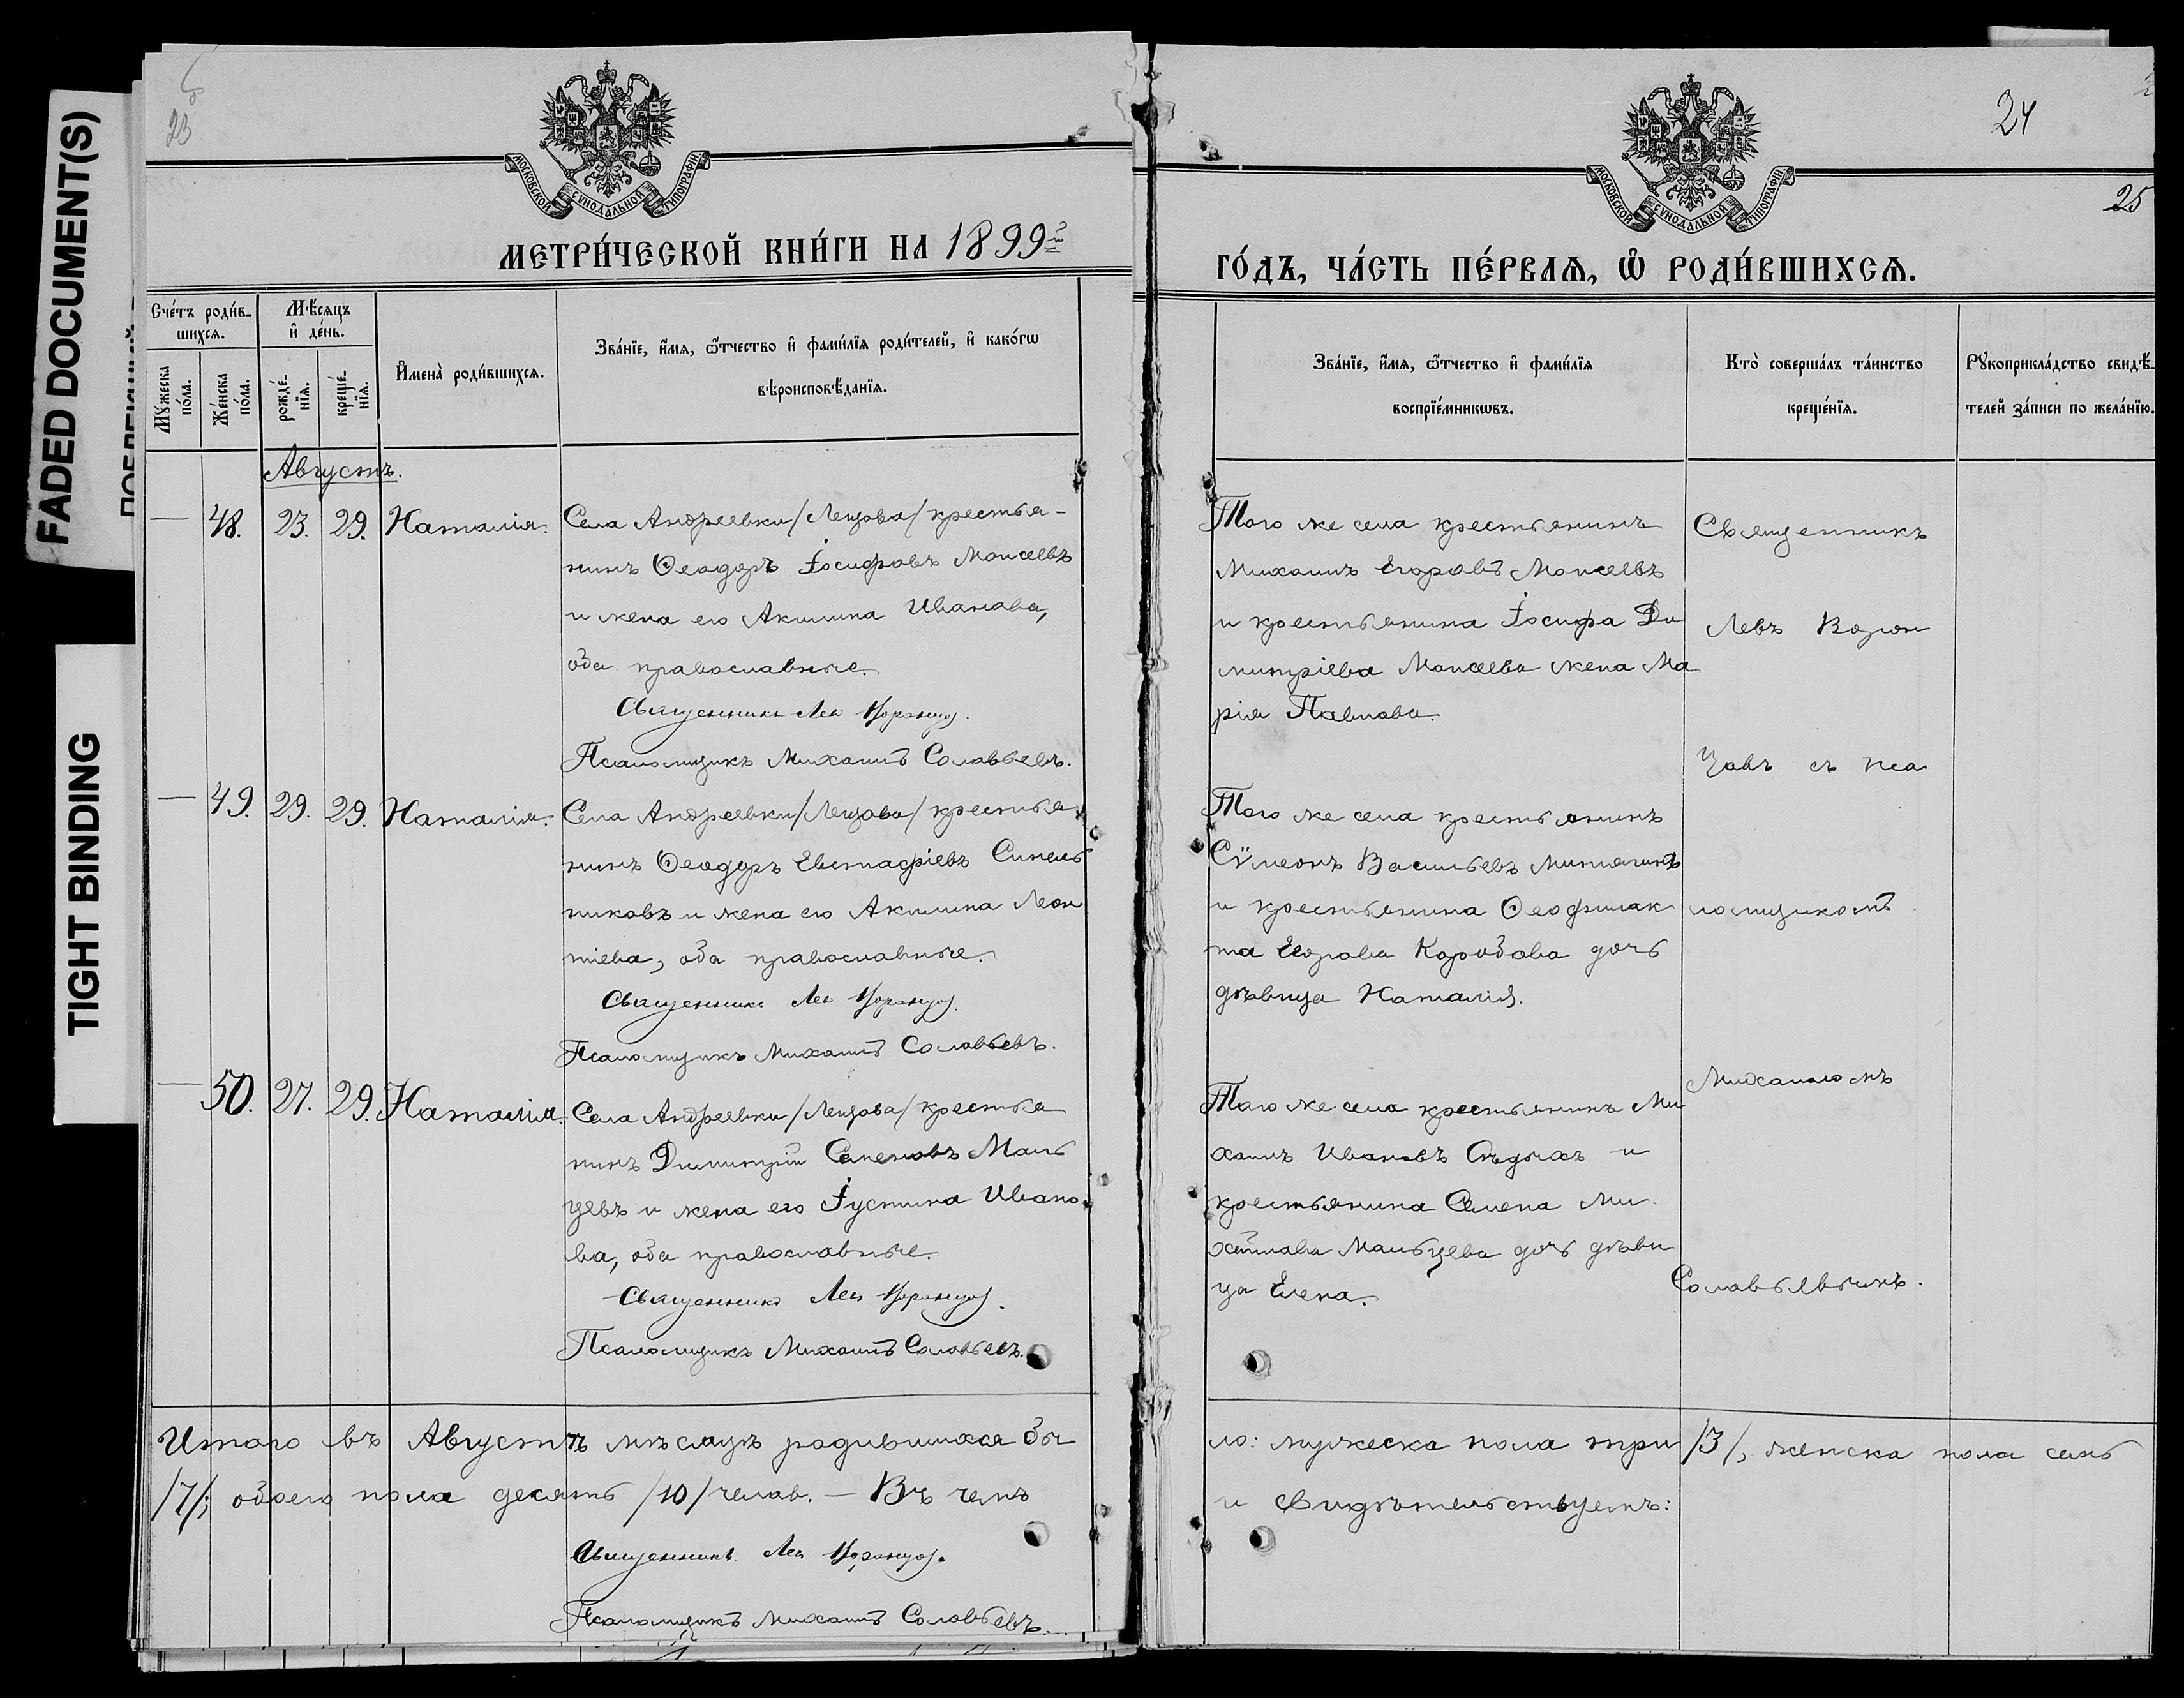 FADED DOCUMENT(S)
TIGHT BINDING
23
МОСКОВСКОЙ СѴНОДАЛЬНОЙ ТИПОГРАФІИ
МЕТРИ́ЧЕСКОЙ КНИ́ГИ НА 1899й
Сче́тъ роди́в-
шихсѧ.
Мѣ́сяцъ
и҆ де́нь.
Мꙋ́жеска
по́ла.
Же́нска
по́ла.
рожде́-
нїѧ.
креще́-
нїѧ.
И҆мена̀ роди́вшихсѧ.
Зва́нїе, и҆́мѧ, ѻ҆́тчество и҆ фами́лїѧ роди́телей, и҆ како́гѡ
вѣроисповѣ́данїѧ.
Августъ.
— 48. 23. 29. Наталія.
Села Андреевки /Лецова/ крестья-
нинъ Ѳеодоръ Іосифовъ Моисеевъ
и жена его Акилина Иванова,
оба православные.
Священникъ Левъ Воронцов.
Псаломщикъ Михаилъ Соловьевъ.
— 49. 29. 29. Наталія.
Села Андреевки /Лецова/ крестья-
нинъ Ѳеодоръ Евстафіевъ Синель
никовъ и жена его Акилина Леон
тіева, оба православные.
Священникъ Левъ Воронцов.
Псаломщикъ Михаилъ Соловьевъ.
— 50. 27. 29. Наталія.
Села Андреевки /Лецова/ крестья
нинъ Димитрій Семеновъ Маль
цевъ и жена его Іустина Ивано
ва, оба православные.
Священникъ Левъ Воронцов.
Псаломщикъ Михаилъ Соловьевъ.
Итого въ Августѣ мѣсяцѣ родившихся бы
/7/; обоего пола десять /10/ челов. — Въ чемъ
Священникъ Левъ Воронцов.
Псаломщикъ Михаилъ Соловьевъ.
24
25
МОСКОВСКОЙ СѴНОДАЛЬНОЙ ТИПОГРАФІИ
ГО́ДЪ, ЧА́СТЬ ПЕ́РВАѦ, Ѡ҆ РОДИ́ВШИХСѦ.
Зва́нїе, и҆́мѧ, ѻ҆́тчество и҆ фами́лїѧ
воспрїе́мникѡвъ.
Кто̀ соверша́лъ та́инство
креще́нїѧ.
Рꙋкоприкла́дство свидѣ́-
телей за́писи по жела́нїю.
Того же села крестьянинъ
Михаилъ Егоровъ Моисеевъ
и крестьянина Іосифа Ди
митріева Моисеева жена Ма
рія Павлова.
Того же села крестьянинъ
Сѷмеонъ Васильевъ Митягинъ
и крестьянина Ѳеофилак
та Егорова Коробова дочь
дѣвица Наталія.
Того же села крестьянинъ Ми
хаилъ Ивановъ Сѣдыхъ и
крестьянина Семена Ми
хайлова Мальцева дочь дѣви
ца Елена.
Священникъ
Левъ Ворон
цовъ съ пса
ломщикомъ
Михаиломъ
Соловьевымъ.
ло: мужеска пола три /3/, женска пола семь
и свидѣтельствуемъ: